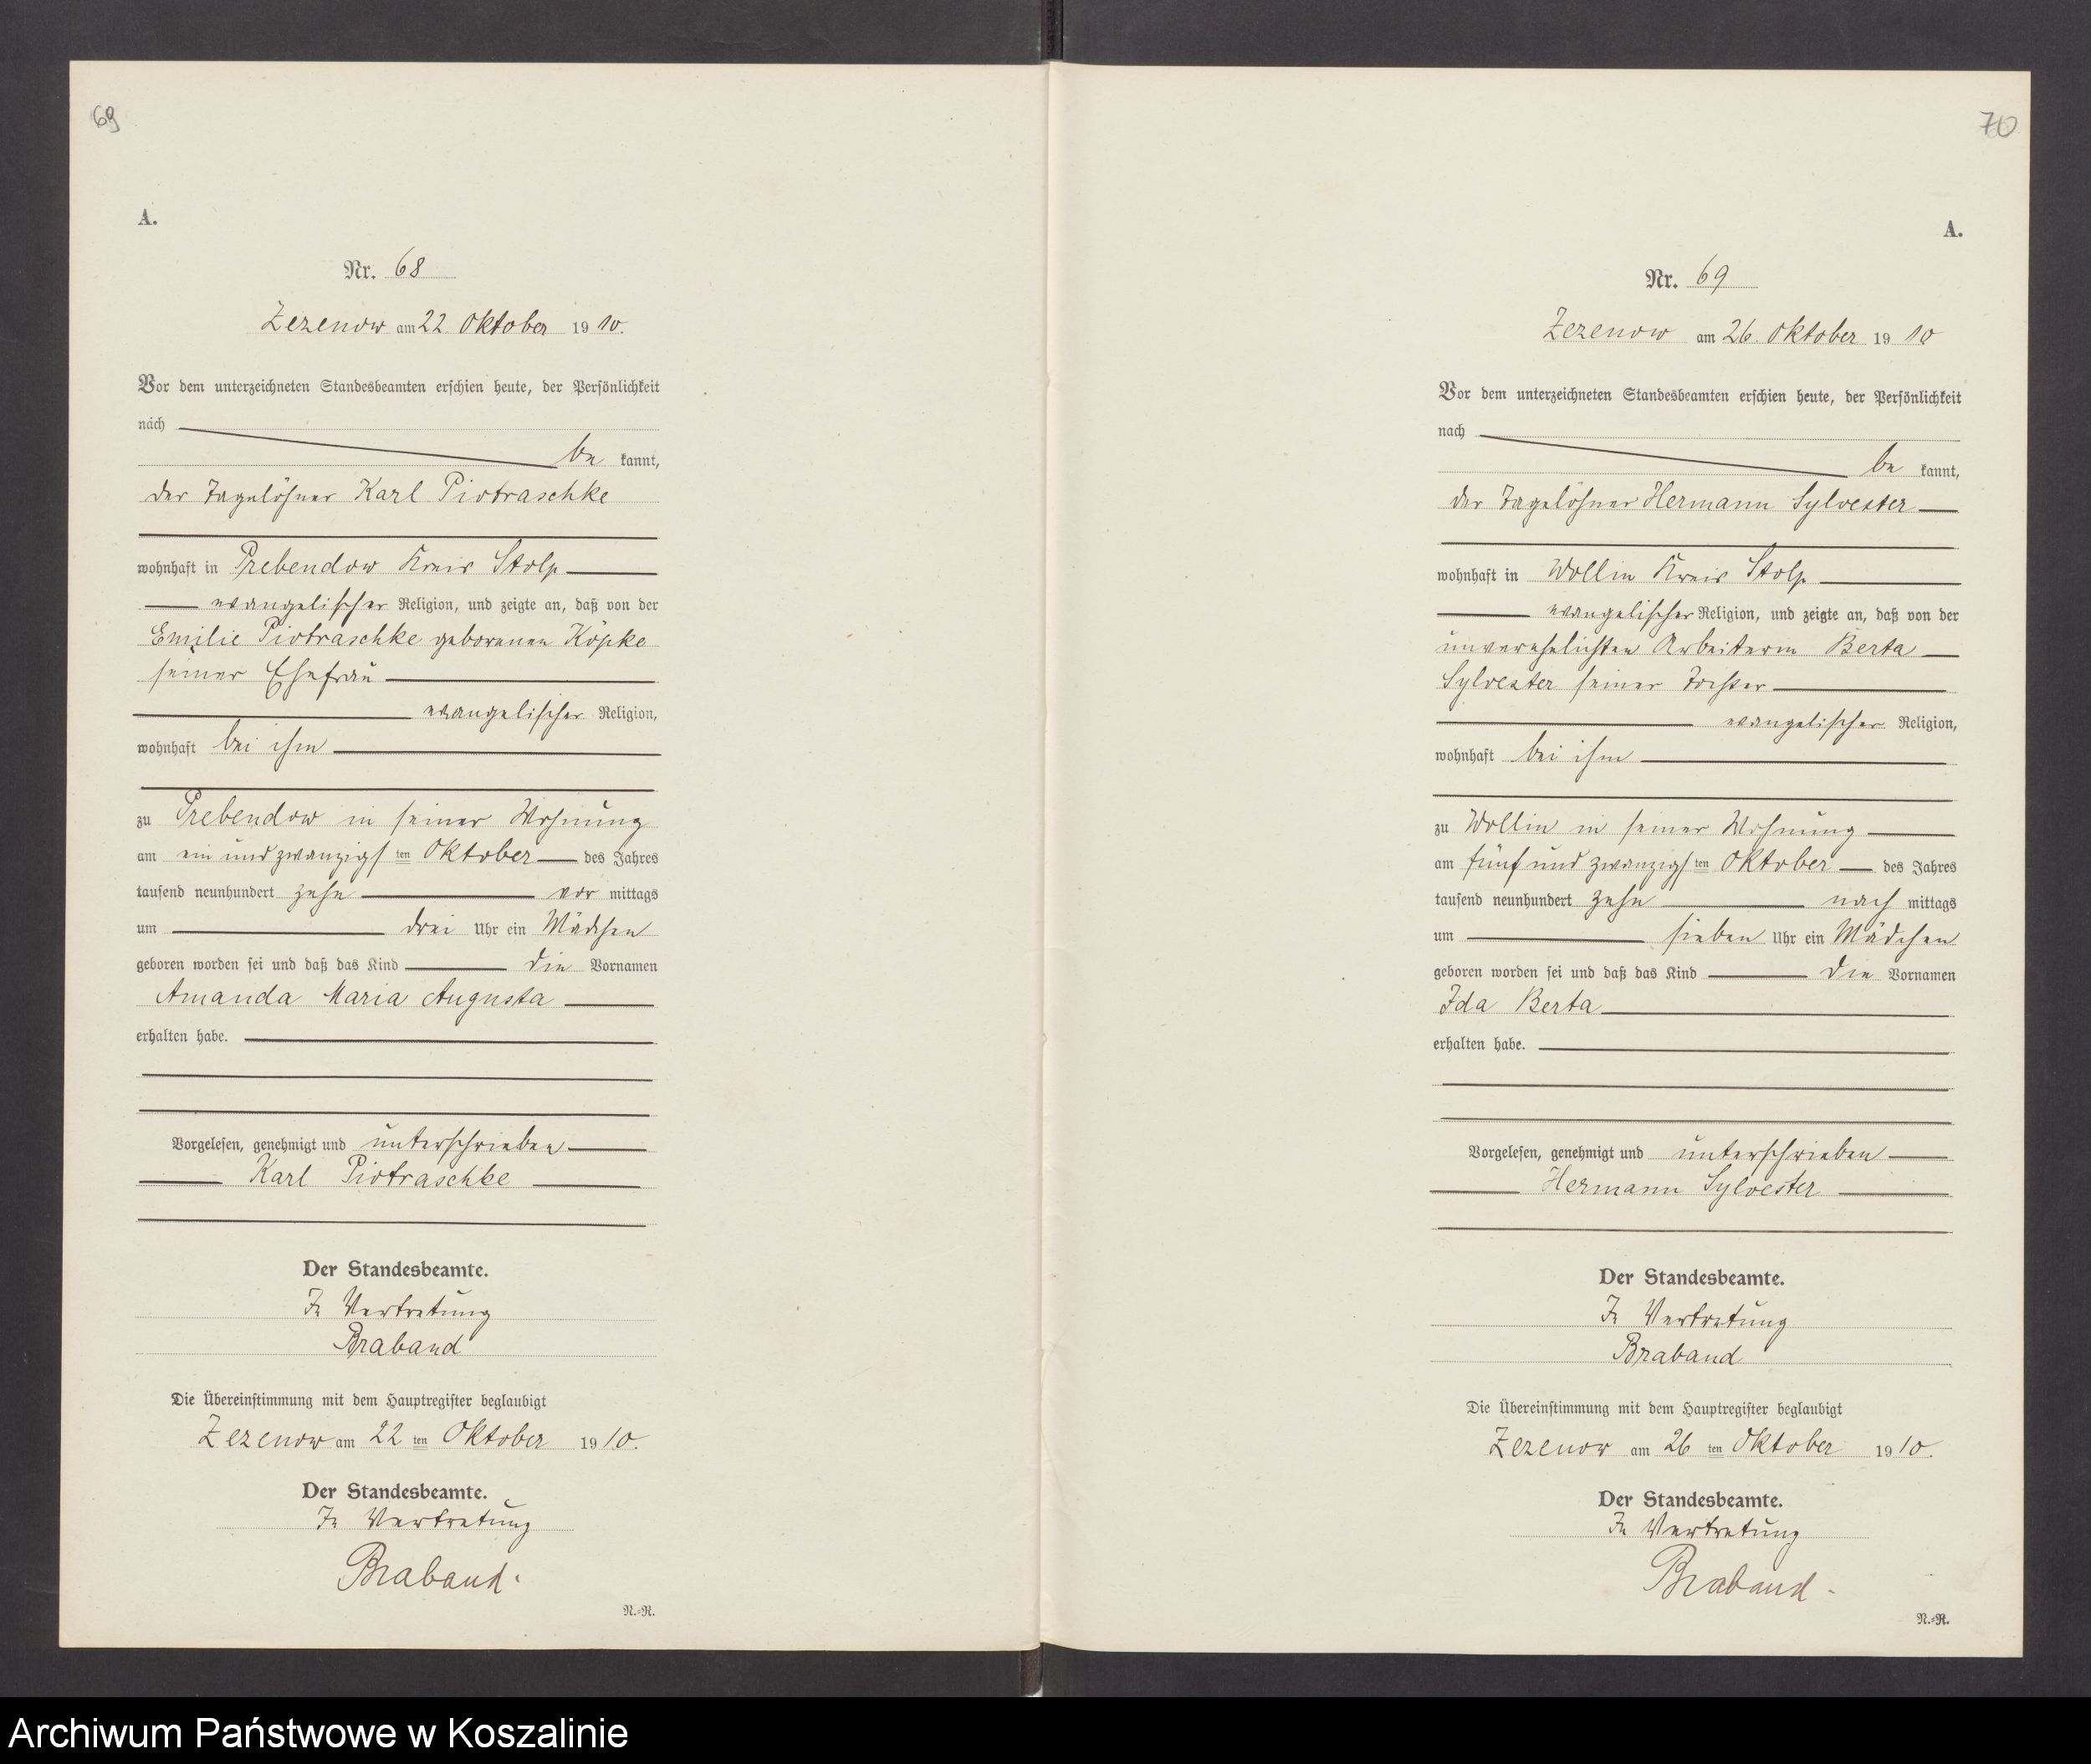 69
A.
Nr. 68
Zezenow am 22 Oktober 1910.
Vor dem unterzeichneten Standesbeamten erschien heute, der Persönlichkeit
nach
be kannt,
der Tagelöhner Karl Piotraschke
wohnhaft in Prebendow Kreis Stolp
evangelischer Religion, und zeigte an, daß von der
Emilie Piotraschke geborenen Köpke
seiner Ehefrau
evangelischer Religion,
wohnhaft bei ihm
zu Prebendow in seiner Wohnung
am ein und zwanzigsten Oktober des Jahres
tausend neunhundert zehn vor mittags
um drei Uhr ein Mädchen
geboren worden sei und daß das Kind die Vornamen
Amanda Maria Augusta
erhalten habe.
Vorgelesen, genehmigt und unterschrieben
Karl Piotraschke
Der Standesbeamte.
In Vertretung
Braband
Die Übereinstimmung mit dem Hauptregister beglaubigt
Zezenow am 22 ten Oktober 1910.
Der Standesbeamte.
In Vertretung
Braband.
N.-R.
70
A.
Nr. 69
Zezenow am 26. Oktober 1910
Vor dem unterzeichneten Standesbeamten erschien heute, der Persönlichkeit
nach
be kannt,
der Tagelöhner Hermann Sylvester
wohnhaft in Wollin Kreis Stolp
evangelischer Religion, und zeigte an, daß von der
unverehelichten Arbeiterin Berta
Sylvester seiner Tochter
evangelischer Religion,
wohnhaft bei ihm
zu Wollin in seiner Wohnung
am fünf und zwanzigsten Oktober des Jahres
tausend neunhundert zehn nach mittags
um sieben Uhr ein Mädchen
geboren worden sei und daß das Kind die Vornamen
Ida Berta
erhalten habe.
Vorgelesen, genehmigt und unterschrieben
Hermann Sylvester
Der Standesbeamte.
In Vertretung
Braband
Die Übereinstimmung mit dem Hauptregister beglaubigt
Zezenow am 26 ten Oktober 1910.
Der Standesbeamte.
In Vertretung
Braband.
N.-R.
Archiwum Państwowe w Koszalinie